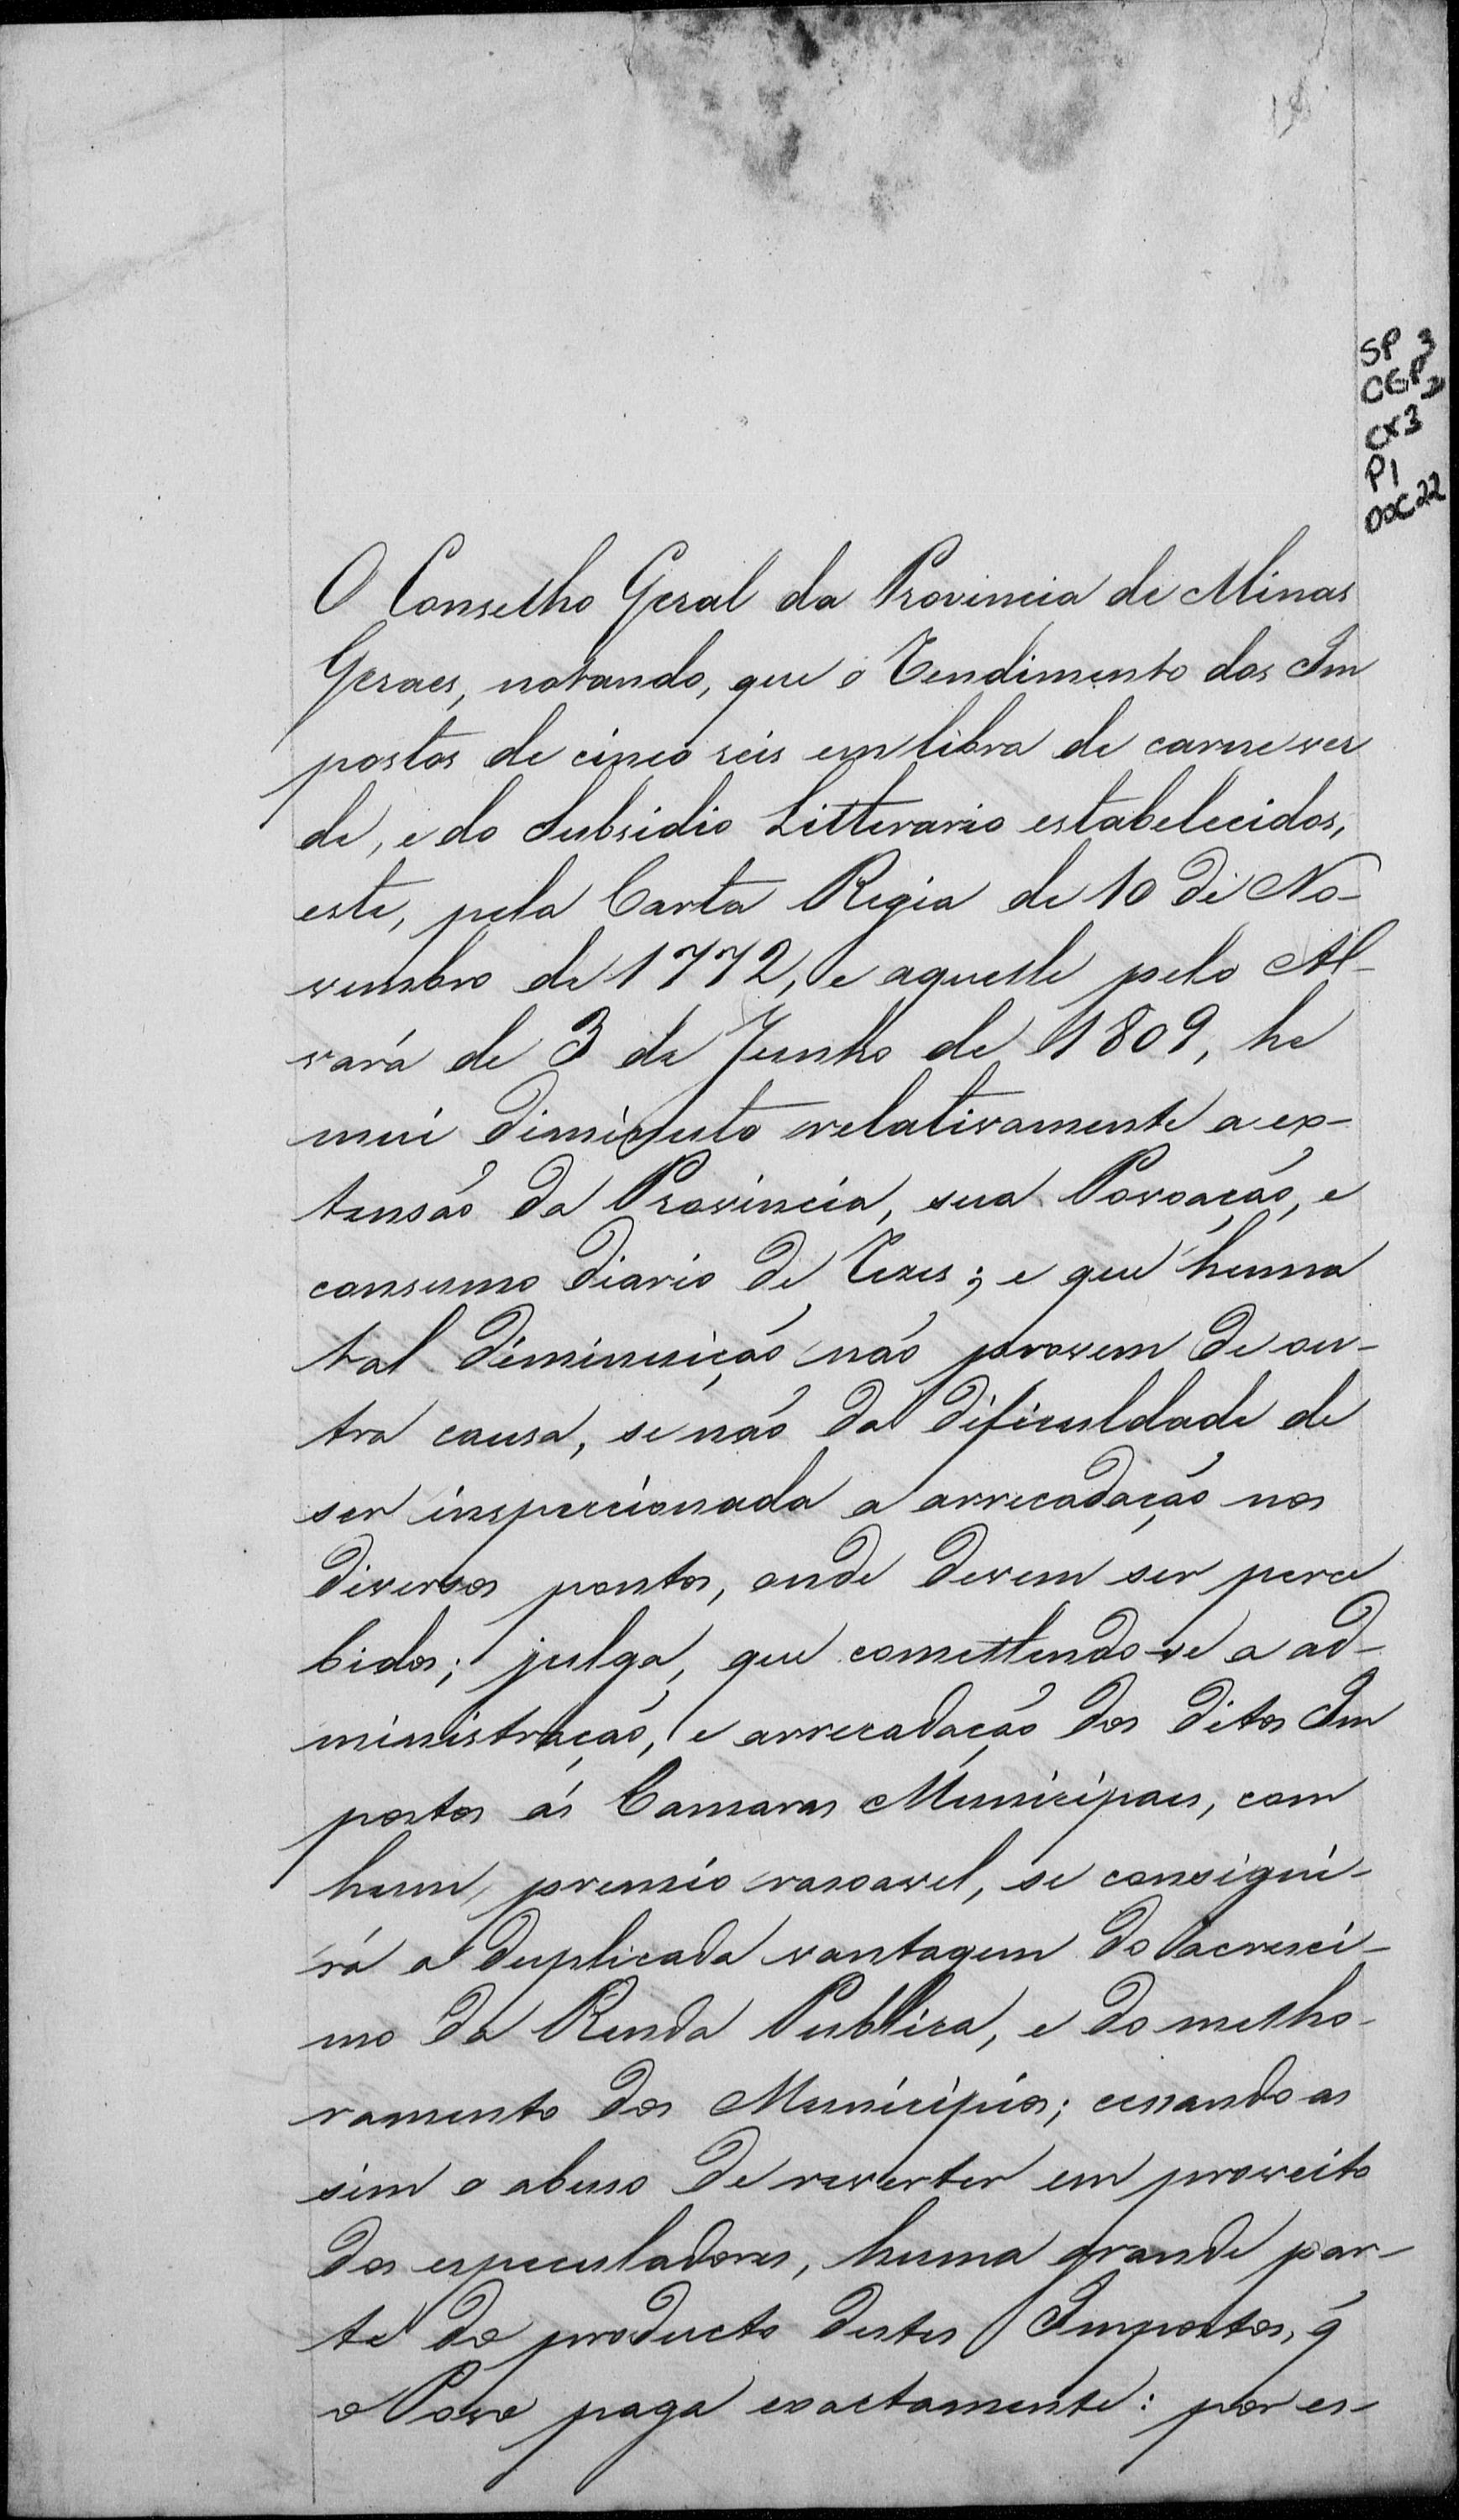 SP 3
CGP 3
CX3
P1
DOC 22
O Conselho Geral da Provincia de Minas
Geraes, notando, que o Rendimento dos Im
postos de cinco reis em libra de carne ver
de, e do Subsidio Litterario estabelecidos,
este, pela Carta Regia de 10 de No-
vembro de 1772, e aquelle pelo Al-
vará de 3 de Junho de 1809, he
mui diminuto relativamente a ex-
tensão da Provincia, sua Povoação, e
consumo diario de Rezes; e que huma
tal diminuição não provem de ou-
tra causa, se não da dificuldade de
ser inspecionada a arrecadação nos
diversos pontos, onde devem ser perce
bidos; julga, que comettendo-se a ad-
ministração, e arrecadação dos ditos Im
postos ás Camaras Municipaes, com
hum premio rasoavel, se consigui-
rá a duplicada vantagem do acresci-
mo da Renda Publica, e do melho-
ramento dos Municipios; cessando as
sim o abuso de reverter em proveito
dos especuladores, huma grande par-
te do producto destes Impostos, q̃
o Povo paga exactamente: por es-